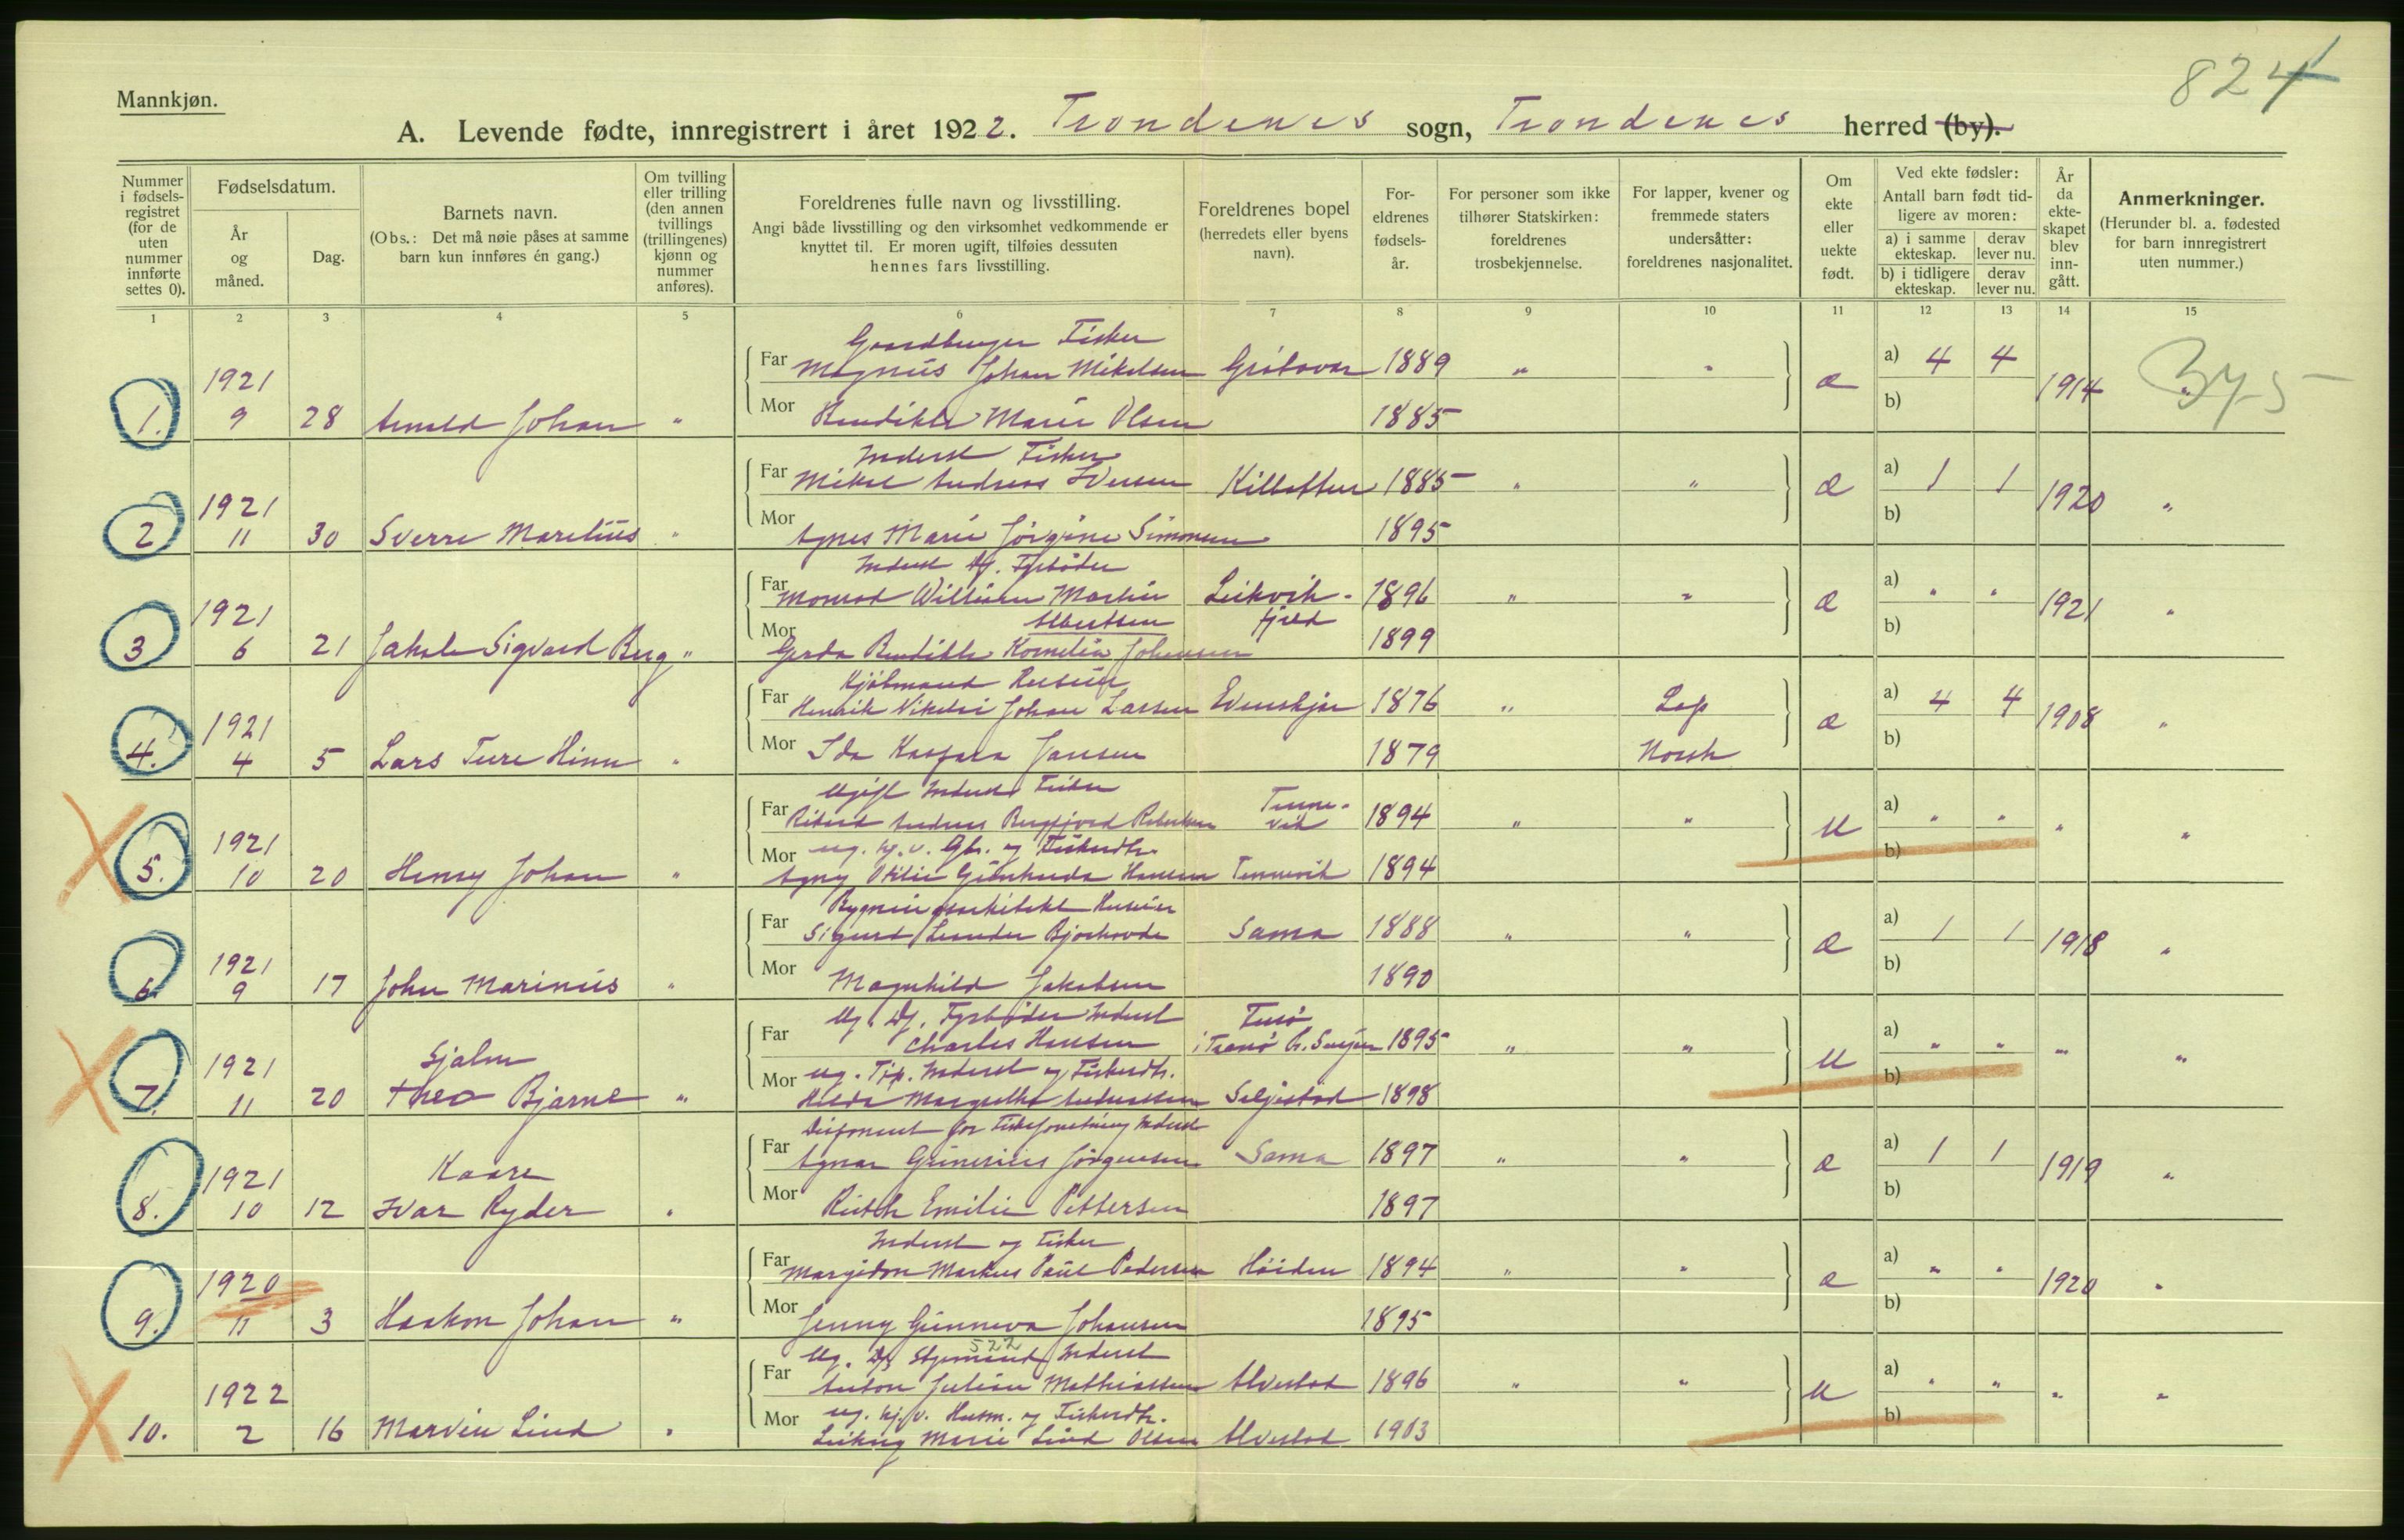 824
Mannkjøn.
A. Levende fødte, innregistrert i året 1922. Trondenes sogn, Trondenes herred (by).
Nummer i fødselsregistret (for de uten nummer innførte settes 0).
Fødselsdatum.
År og måned.
Dag.
Barnets navn.
(Obs.: Det må nøie påses at samme barn kun innføres én gang.)
Om tvilling eller trilling (den annen tvillings (trillingenes) kjønn og nummer anføres).
Foreldrenes fulle navn og livsstilling.
Angi både livsstilling og den virksomhet vedkommende er knyttet til. Er moren ugift, tilføies dessuten hennes fars livsstilling.
Foreldrenes bopel (herredets eller byens navn).
Foreldrenes fødselsår.
For personer som ikke tilhører Statskirken: foreldrenes trosbekjennelse.
For lapper, kvener og fremmede staters undersåtter: foreldrenes nasjonalitet.
Om ekte eller uekte født.
Ved ekte fødsler:
Antall barn født tidligere av moren:
a) i samme ekteskap.
derav lever nu.
b) i tidligere ekteskap.
derav lever nu.
År da ekteskapet blev inngått.
Anmerkninger.
(Herunder bl. a. fødested for barn innregistrert uten nummer.)
1 2 3 4 5 6 7 8 9 10 11 12 13 14 15
Gaardbruger Fisker
1921 Far Magnus Johan Mikelsen 1889 " " a) 4 4
1. 9 28 Arnold Johan " Mor Bendikte Marie Olsen 1885 b) 1914 "
Inderst Fisker
1921 Far Mikal Andreas Iversen 1885 " " a) 1 1
2 11 30 Sverre Marelius " Mor Agnes Marie Jørgine Simonsen 1895 b) 1920 "
Inderst
1921 Far Monrad William Martin Leikvik- 1896 " " a) " "
Albertsen fjeld
3 6 21 Jakob Sigvard Berg " Mor Gerda Bendikte Kornelia Johansen 1899 b) 1921 "
1921 Far Henrik Nikolai Johan Larsen Evenskjær 1876 " Lap a) 4 4
4. 4 5 Lars Ture Hinn " Mor Ida Kaspara Jansen 1879 Norsk b) 1908 "
Ugift Inderst Fisker
1921 Far Tenne-vik 1894 " " a) " "
ug. og Fiskerdtr.
5. 10 20 Henry Johan " Mor Hansen Tennevik 1894 u b) " "
1921 Far Sigurd Sama 1888 " " a) 1 1
6. 9 17 John Marinus " Mor Magnhild Jakobsen 1890 b) 1918 "
Ug. Fyrbøder Inderst
1921 Hjalm Far Charles Hansen 1895 " " a) " "
ug. Inderst og Fiskerdtr.
7. 11 20 Theo Bjarne " Mor Hilda Margrethe Andreassen Seljestad 1898 u b) " "
Disponent for Fiskeforretning Inderst
1921 Kaare Far Jørgensen Sama 1897 " " a) 1 1
8. 10 12 Ivar Ryder " Mor Ruth Emilie Pettersen 1897 b) 1919 "
Inderst og Fisker
1920 Far Margido Markus Paul Pedersen 1894 " " a) " "
9. 11 3 Haakon Johan " Mor Jenny Gunneva Johansen 1895 b) 1920 "
522
Ug. Inderst
1922 Far Anton Julian Mathiassen Alvestad 1896 " " a) " "
ug. Husm. og Fiskerdtr.
10. 2 16 Marvin Lind " Mor Marie Lind Olsen Alvestad 1903 u b) " "